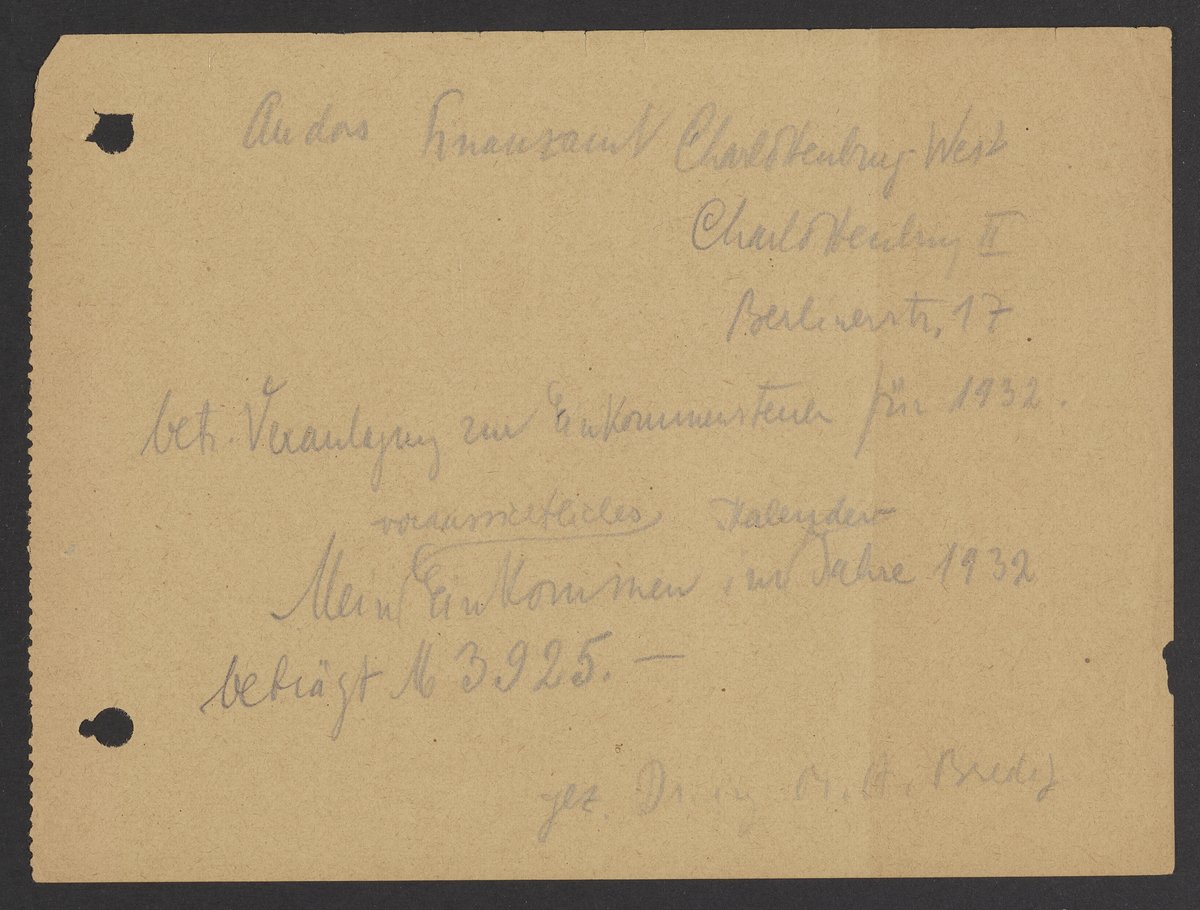 An das Finanzamt Charlottenburg-West
Charlottenburg II
Berlinerstr. 17
betr. Veranlagung zur Einkommensteuer für 1932.
voraussichtliches Kalender-
Mein Einkommen im Jahre 1932
beträgt M 3925.—
gez. Dr. ing. M. A. Bredig